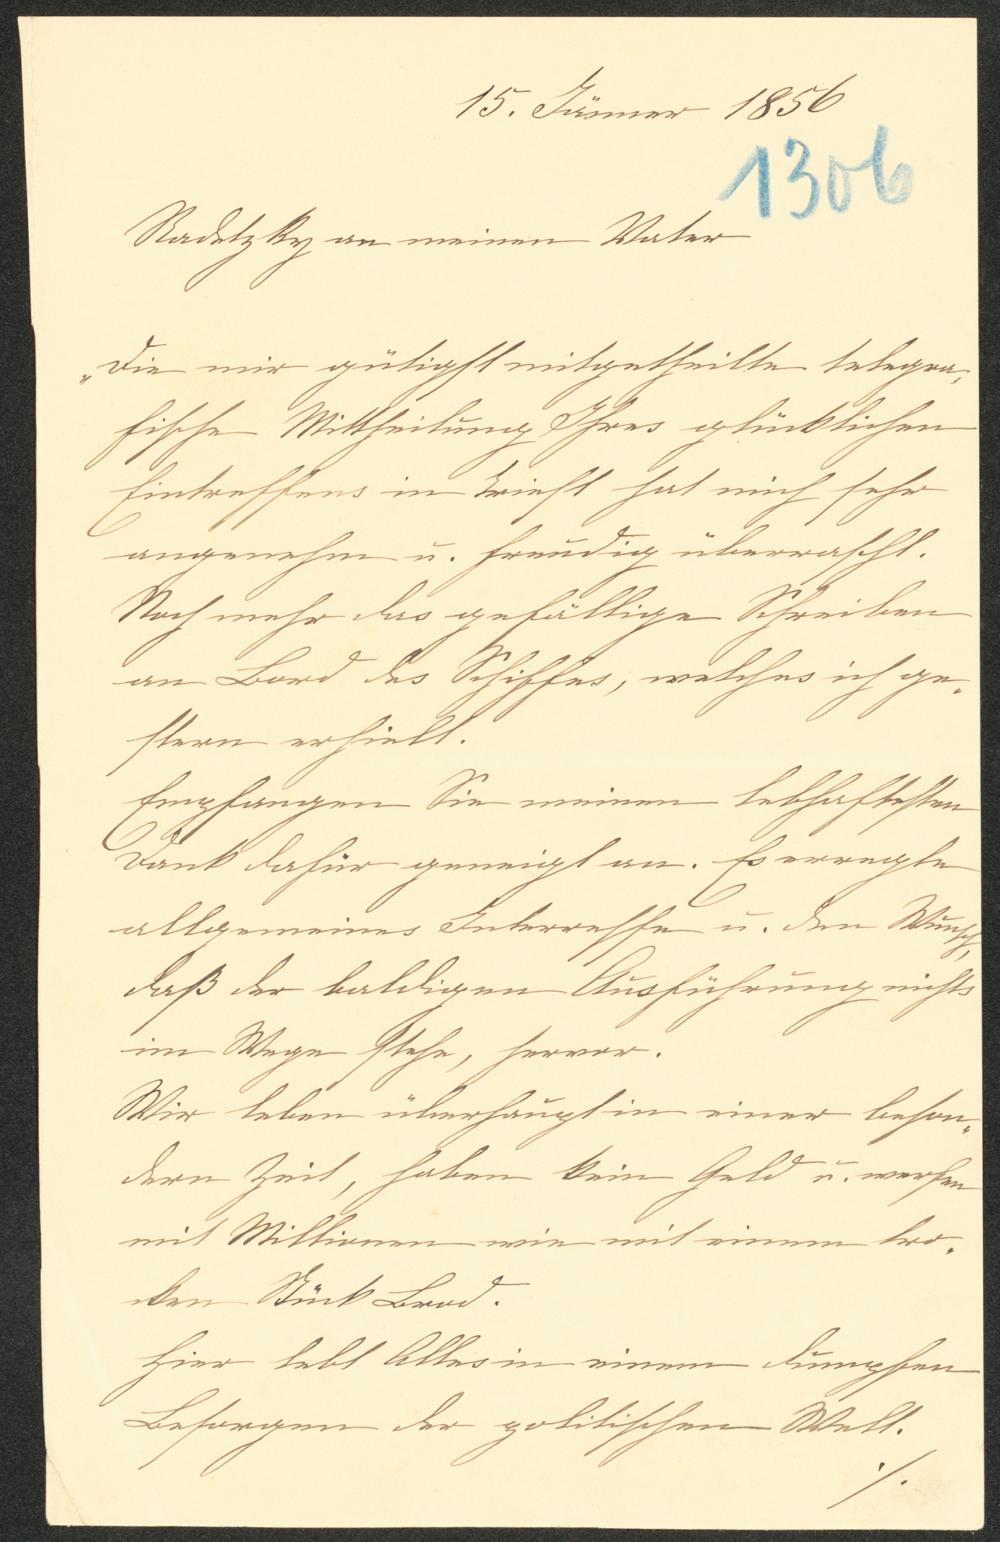 15. Jänner 1856
1306
Radetzky an meinen Vater
„Die mir gütigst mitgetheilte telegra„
fische Mittheilung Ihres glücklichen
Eintreffens in Triest hat mich sehr
angenehm u. freudig überrascht.
Noch mehr das gefällige Schreiben
an Bord des Schiffes, welches ich ge„
stern erhielt.
Empfangen Sie meinen lebhaftesten
Dank dafür geneigt an. Es erregte
allgemeines Interresse u. den Wunsch,
daß der baldigen Ausführung nichts
im Wege stehe, hervor.
Wir leben überhaupt in einer beson„
dern Zeit, haben kein Geld u. werfen
mit Millionen wie mit einem tro„
cken Stück Brod.
Hier lebt Alles in einem dumpfen
Besorgen der politischen Welt.
./.